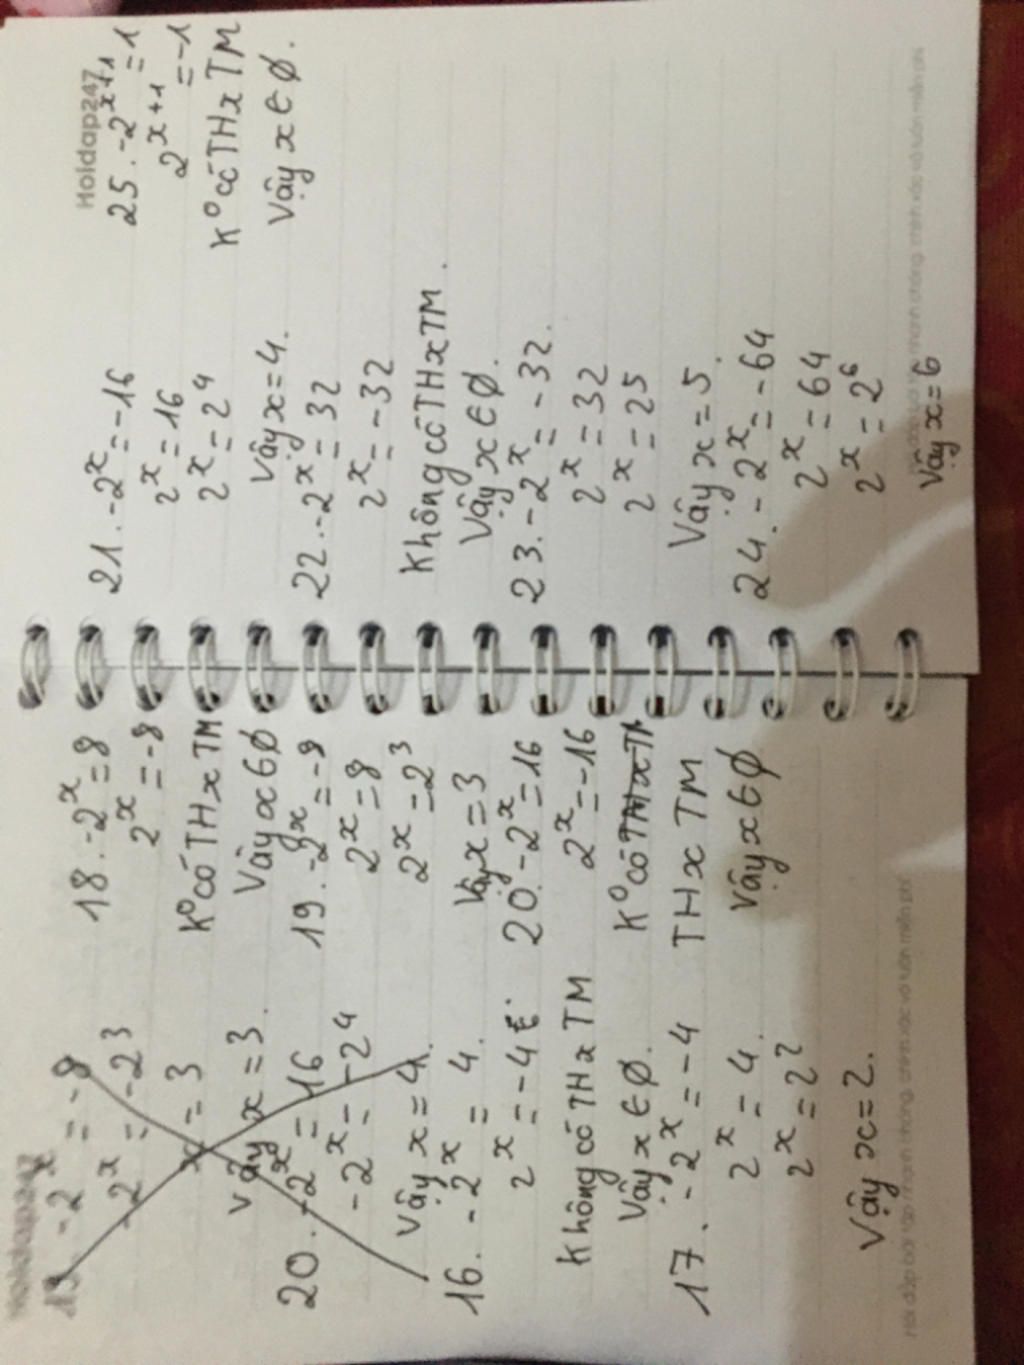 Holdap247
19. -2^x = -8
-2^x = -2^3
x = 3
Vậy x = 3.
20. -2^x = 16
-2^x = -2^4
Vậy x = 4.
16. -2^x = 4.
2^x = -4
Không có TH x TM
Vậy x ∈ Ø.
17. -2^x = -4
2^x = 4.
2^x = 2^2
Vậy x = 2.
18. -2^x = 8
2^x = -8
K° có TH x TM
Vậy x ∈ Ø
19. -2^x = -8
2^x = 8
2^x = 2^3
Vậy x = 3
20. -2^x = 16
2^x = -16
K° có TH x TM
TH x TM
Vậy x ∈ Ø
Hỏi đáp bài tập nhanh chóng, chính xác và luôn miễn phí
21. -2^x = -16
2^x = 16
2^x = 2^4
Vậy x = 4.
22. -2^x = 32
2^x = -32
Không có TH x TM.
Vậy x ∈ Ø.
23. -2^x = -32.
2^x = 32
2^x = 25
Vậy x = 5.
24. -2^x = -64
2^x = 64
2^x = 2^6
Vậy x = 6
Holdap247
25. -2^x+1 = 1
2^x+1 = -1
K° có TH x TM
Vậy x ∈ Ø.